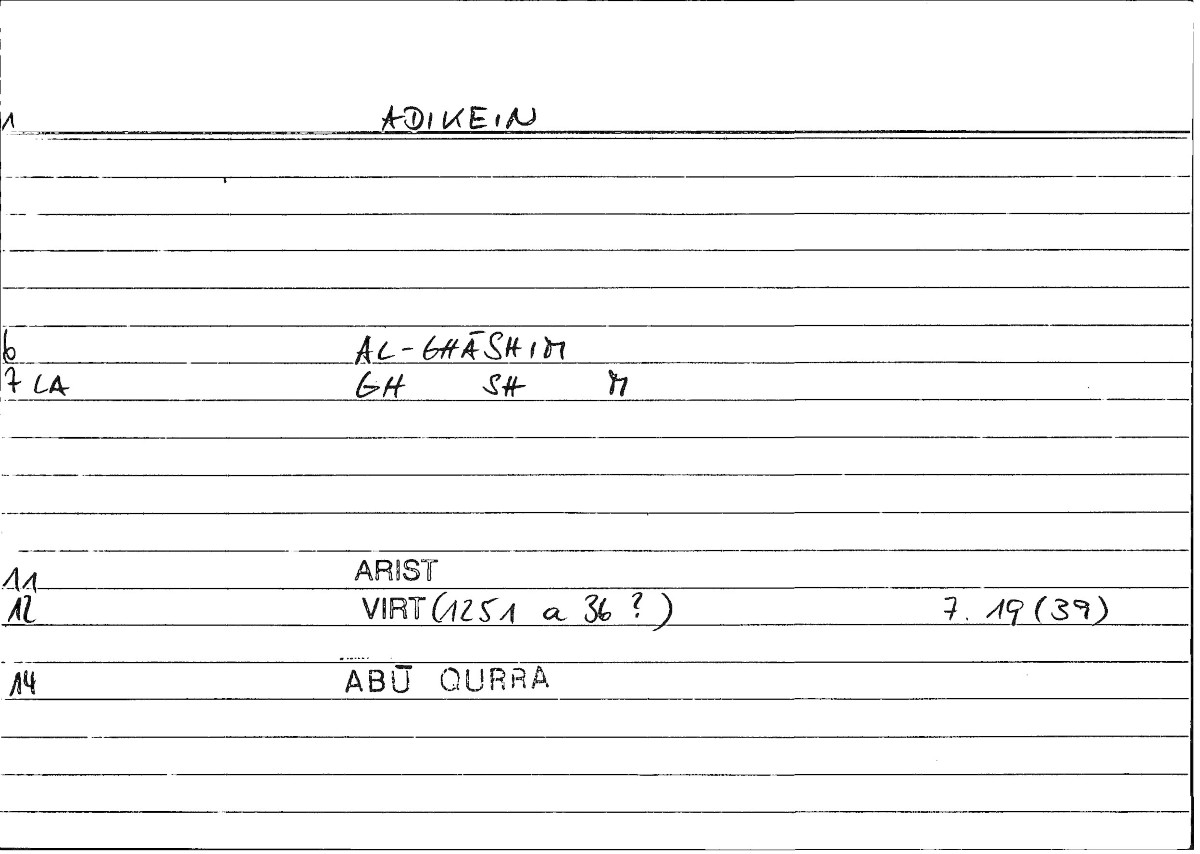 1 ADIKEIN
6 AL-GHĀSHIM
7 LA GH SH M
11 ARIST
12 VIRT (1251 a 36 ?) 7. 19 (39)
14 ABŪ QURRA